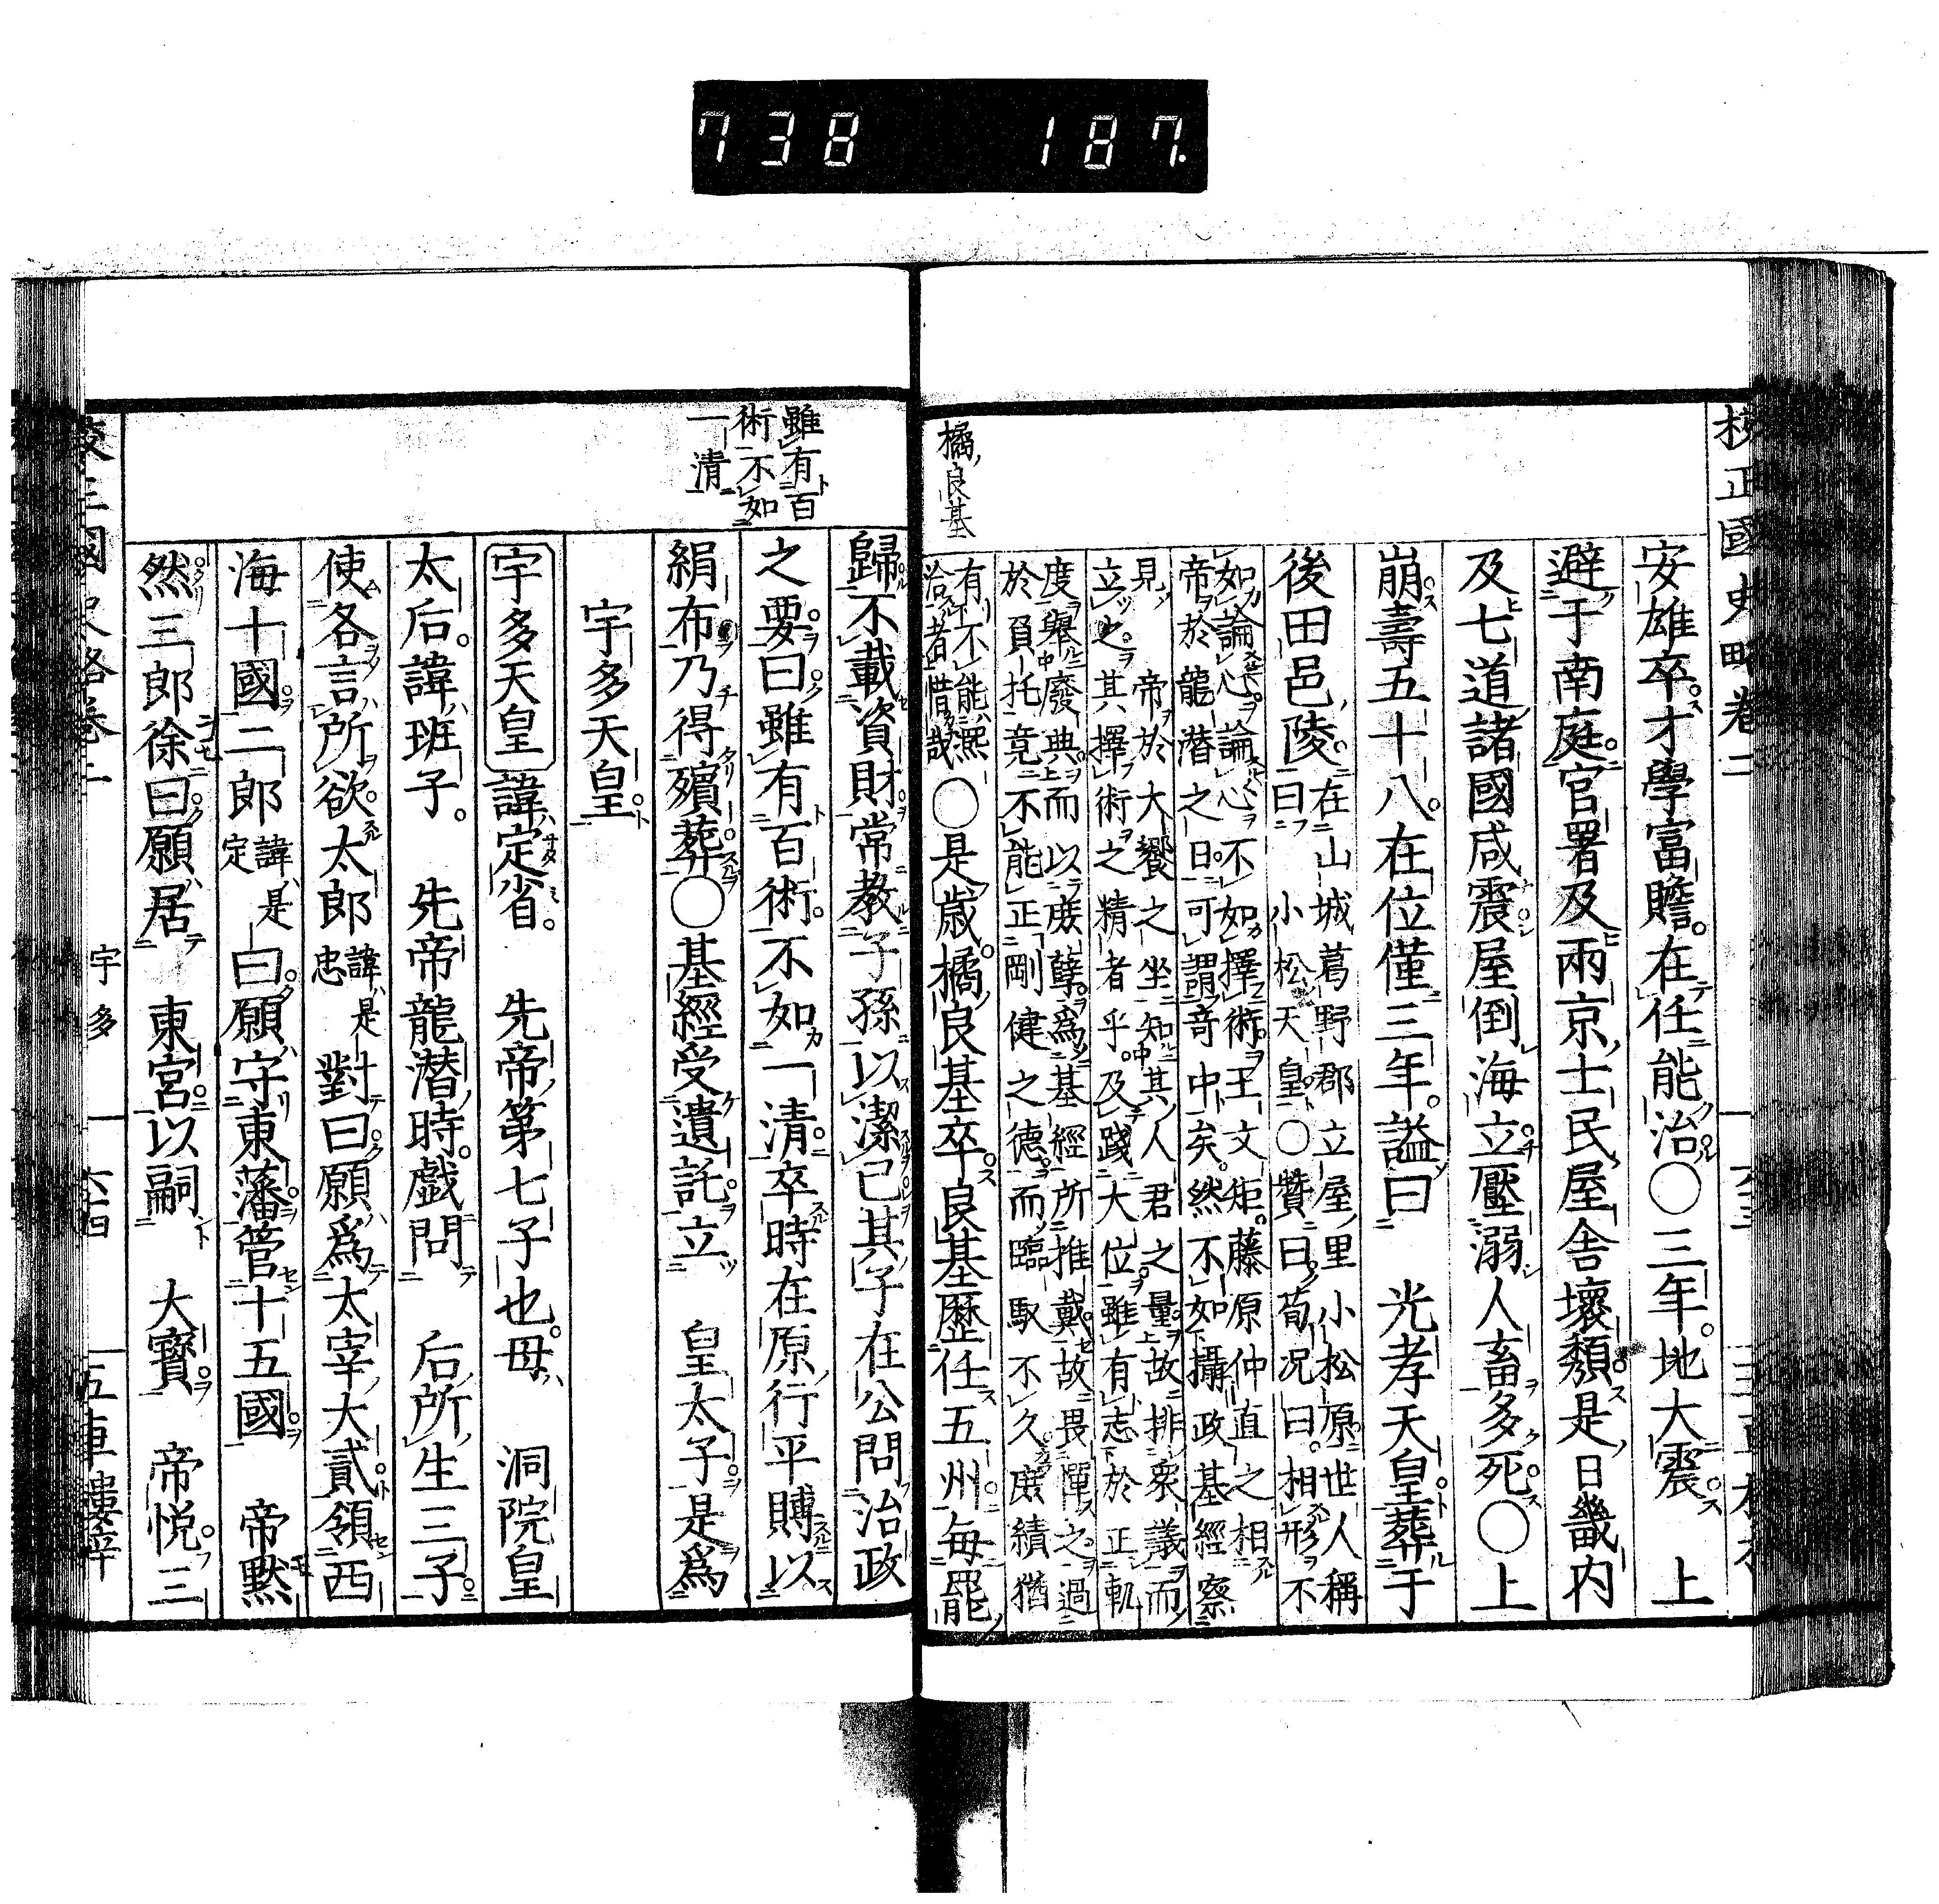 738 187.
校正國史略卷二
安雄卒才學富贍在任能治〇三年地大震 上
避于南庭官署及兩京士民屋舍壞頽是日畿内
及七道諸國咸震屋倒海立壓溺人畜多死〇上
崩壽五十八在位僅三年諡曰 光孝天皇葬于
後田邑陵
在山城葛野郡立屋里小松原世人稱
曰 小松天皇〇贊曰荀況曰相形不
如論心論心不如擇術王文矩藤原仲直之相
帝於龍潜之日可謂奇中矣然不如攝政基經察
見 帝於大饗之坐知其人君之量故排衆議而
立之其擇術之精者乎及踐大位雖有志於正軌
度舉廢典而以庶孽爲基經所推戴故畏憚之過
於負托竟不能正剛健之德而臨馭不久庶績猶
有不能熙
洽者惜哉
〇是歲橘良基卒良基歷任五州每罷
橘良基
歸不載資財常教子孫以潔己其子在公問治政
之要曰雖有百術不如一清卒時在原行平賻以
絹布乃得殯葬〇基經受遺託立 皇太子是爲
宇多天皇
雖有百
術不如
一清
宇多天皇 諱定省 先帝第七子也母 洞院皇
太后諱班子 先帝龍潜時戲問 后所生三子
使各言所欲太郎諱是忠對曰願爲太宰大貳領西
海十國二郎諱是定曰願守東藩管十五國 帝默
然三郎徐曰願居 東宮以嗣 大寶 帝悦三
宇多
六四
五車樓梓